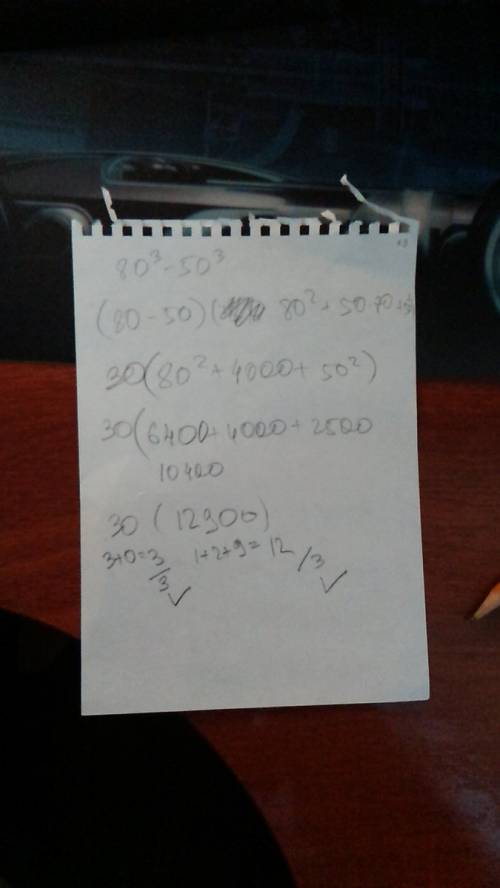 80³-50³
(80-50)( 80²+50·80+
30(80²+4000+50²)
30(6400+4000+2500
10400
30 (12900)
3+0=3/3 ✓ 1+2+9=12/3 ✓